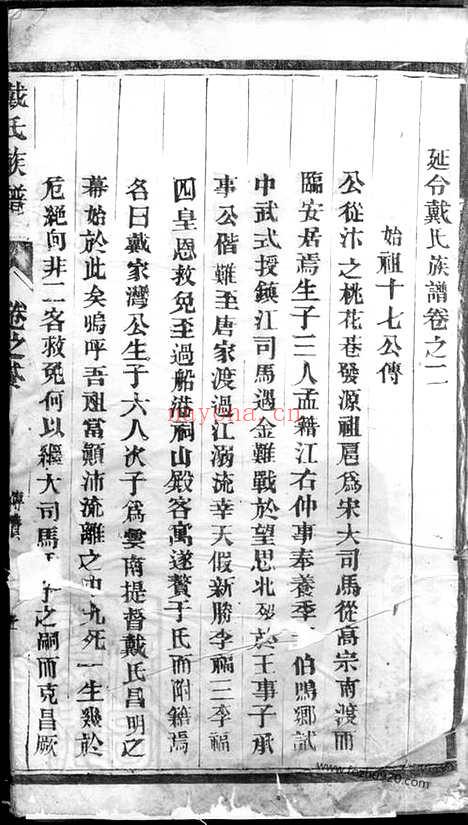 延令戴氏族譜卷之二
始祖十七公傳
公從汴之桃花巷發源祖扈為宋大司馬從高宗南渡而
臨安居焉生子三人孟籍江右仲事奉養季 伯鵬鄉試
中武式授鎮江司馬遇金難戰於望思北 於王事子承
事公偕難至唐家渡過江溺流幸天假新勝李福二李福
四皇恩救免至過船港祠山殿客寓遂贅于氏而附籍焉
名曰戴家灣公生子六人次子為雲南提督戴氏昌明之
幕始於此矣嗚呼吾祖當顛沛流離之中九死一生幾於
危絕向非二客救免何以繼大司馬 子之嗣而克昌厥
戴氏族譜
卷之
傳贊
nnycha.cn
www.fozhu920.com